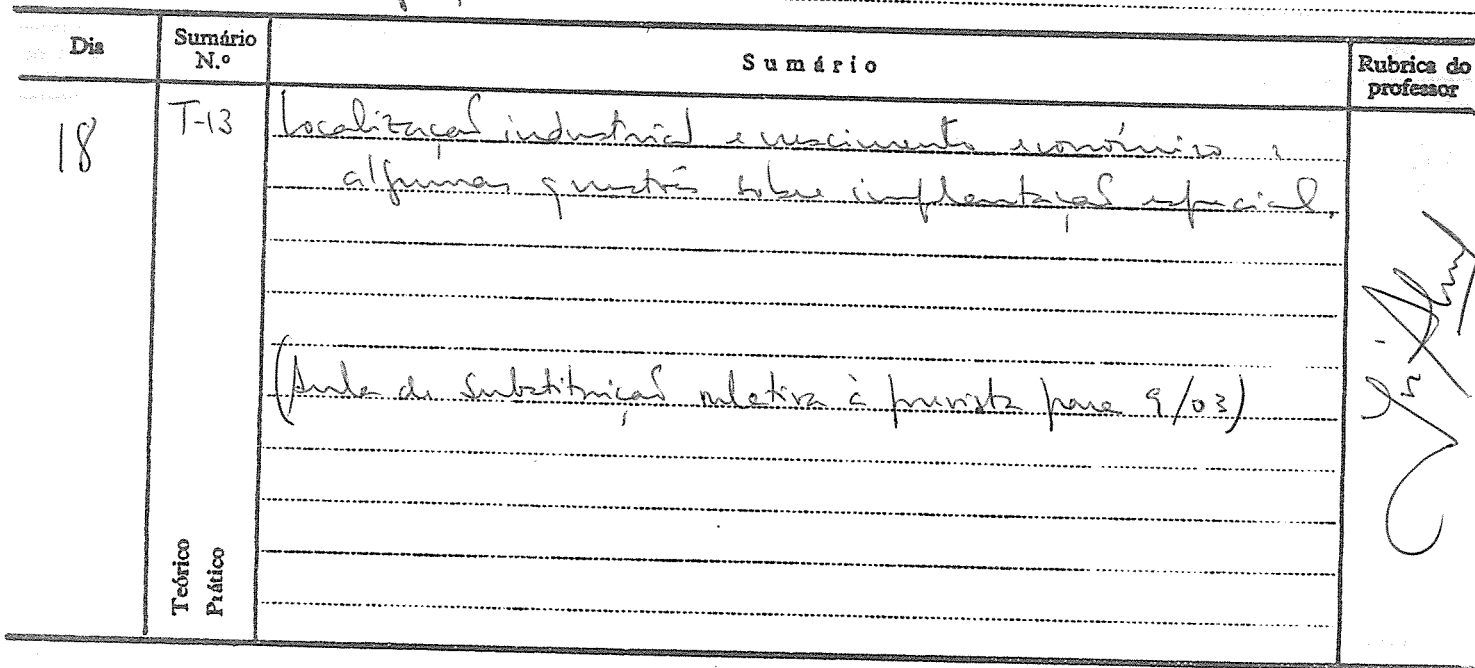 Dia
Sumário N.º
Sumário
Rubrica do professor
18
T-13
Localização industrial e crescimento económico :
algumas questões sobre implantação espacial.
(Aula de substituição relativa à prevista para 9/03)
Teórico
Prático